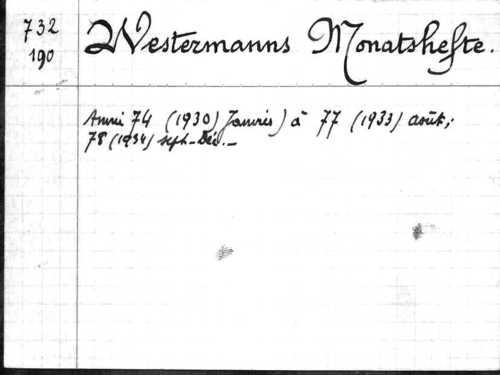 732
190
Westermanns Monatshefte.
Année 74 (1930) Janvier) à 77 (1933) août;
78 (1934) sept.-Déc._